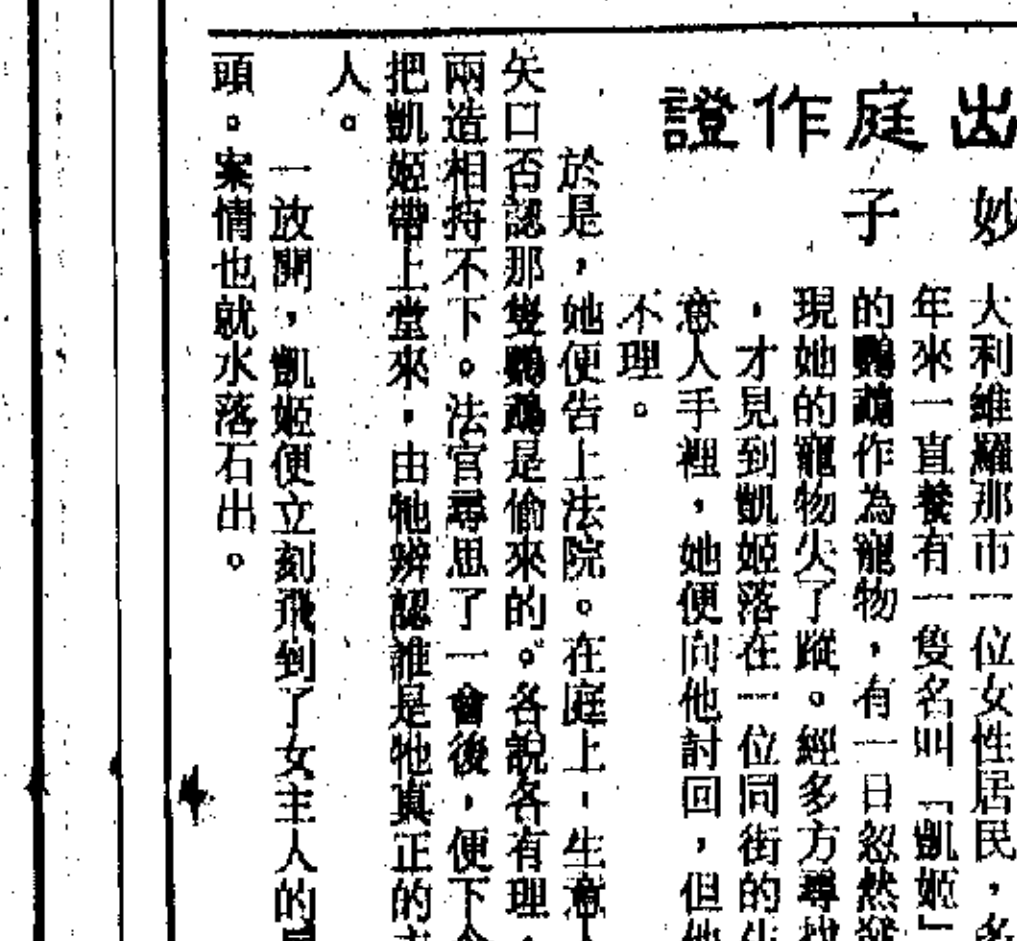 出庭作證
妙子
大利維羅那市一位女性居民，名
年來一直養有一隻名叫「凱姬」
的鸚鵡作為寵物，有一日忽然發
現她的寵物失了蹤。經多方尋找
，才見到凱姬落在一位同街的生
意人手裡，她便向他討回，但他
不理。
於是，她便告上法院。在庭上，生意人
矢口否認那隻鸚鵡是偷來的。各說各有理，
兩造相持不下。法官尋思了一會後，便下令
把凱姬帶上堂來，由牠辨認誰是牠真正的主
人。
一放開，凱姬便立刻飛到了女主人的肩
頭。案情也就水落石出。